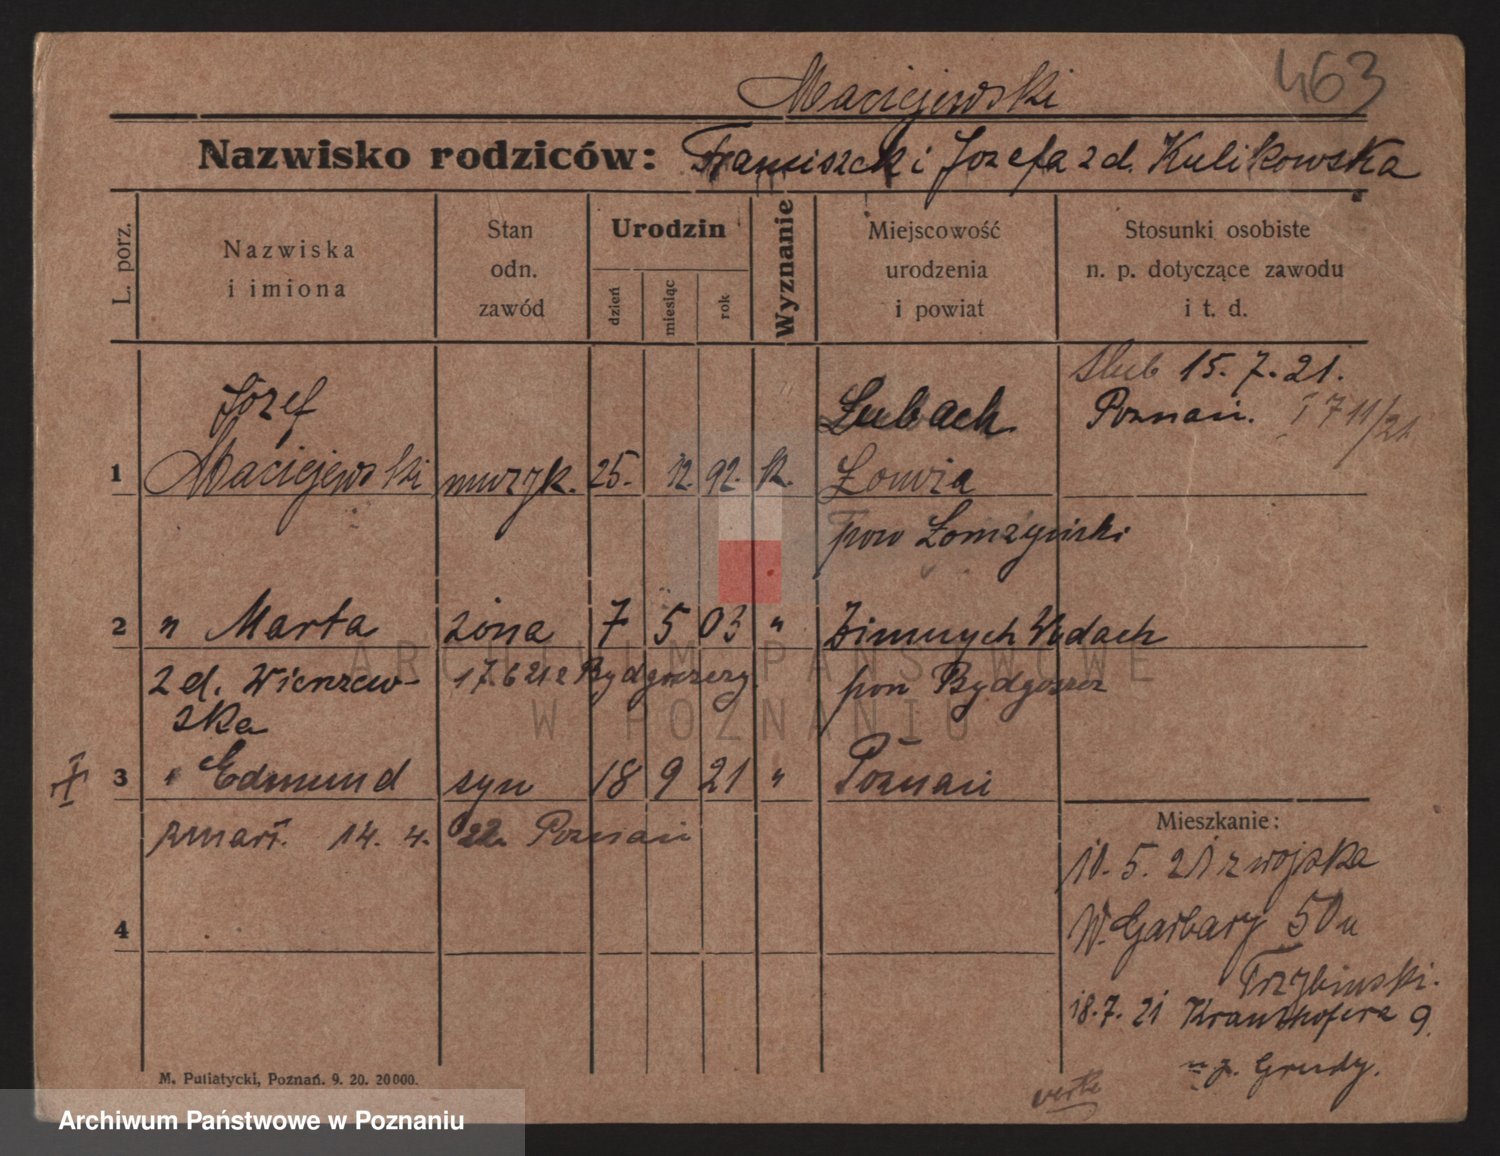 463
Maciejewski
Nazwisko rodziców: Franciszek i Jozefa z d. Kulikowska
L. porz.
Nazwiska
i imiona
Stan
odn.
zawód
Urodzin
dzień
miesiąc
rok
Wyznanie
Miejscowość
urodzenia
i powiat
Stosunki osobiste
n. p. dotyczące zawodu
i t. d.
Slub 15. 7. 21.
Poznań. 711/21
Józef Łubach
1 Maciejewski muzyk. 25. 12. 92. k. Łomża
pow Łomzyński
2 " Marta żona 7 5 03 " Zimnych Wodach
z d. Wierzew- 17. 6 21 z Bydgoszczy pow Bydgoszcz
ska
3 " Edmund syn 18 9 21 " Poznań
zmarł. 14. 4. 22. Poznań
Mieszkanie:
10. 5. 21 z wojska
4
W. Garbary 50
Trzybinski.
18. 7. 21 Kranthofera 9.
Grudy.
verte
M. Putiatycki, Poznań. 9. 20. 20000.
ARCHIWUM PAŃSTWOWE
W POZNANIU
Archiwum Państwowe w Poznaniu